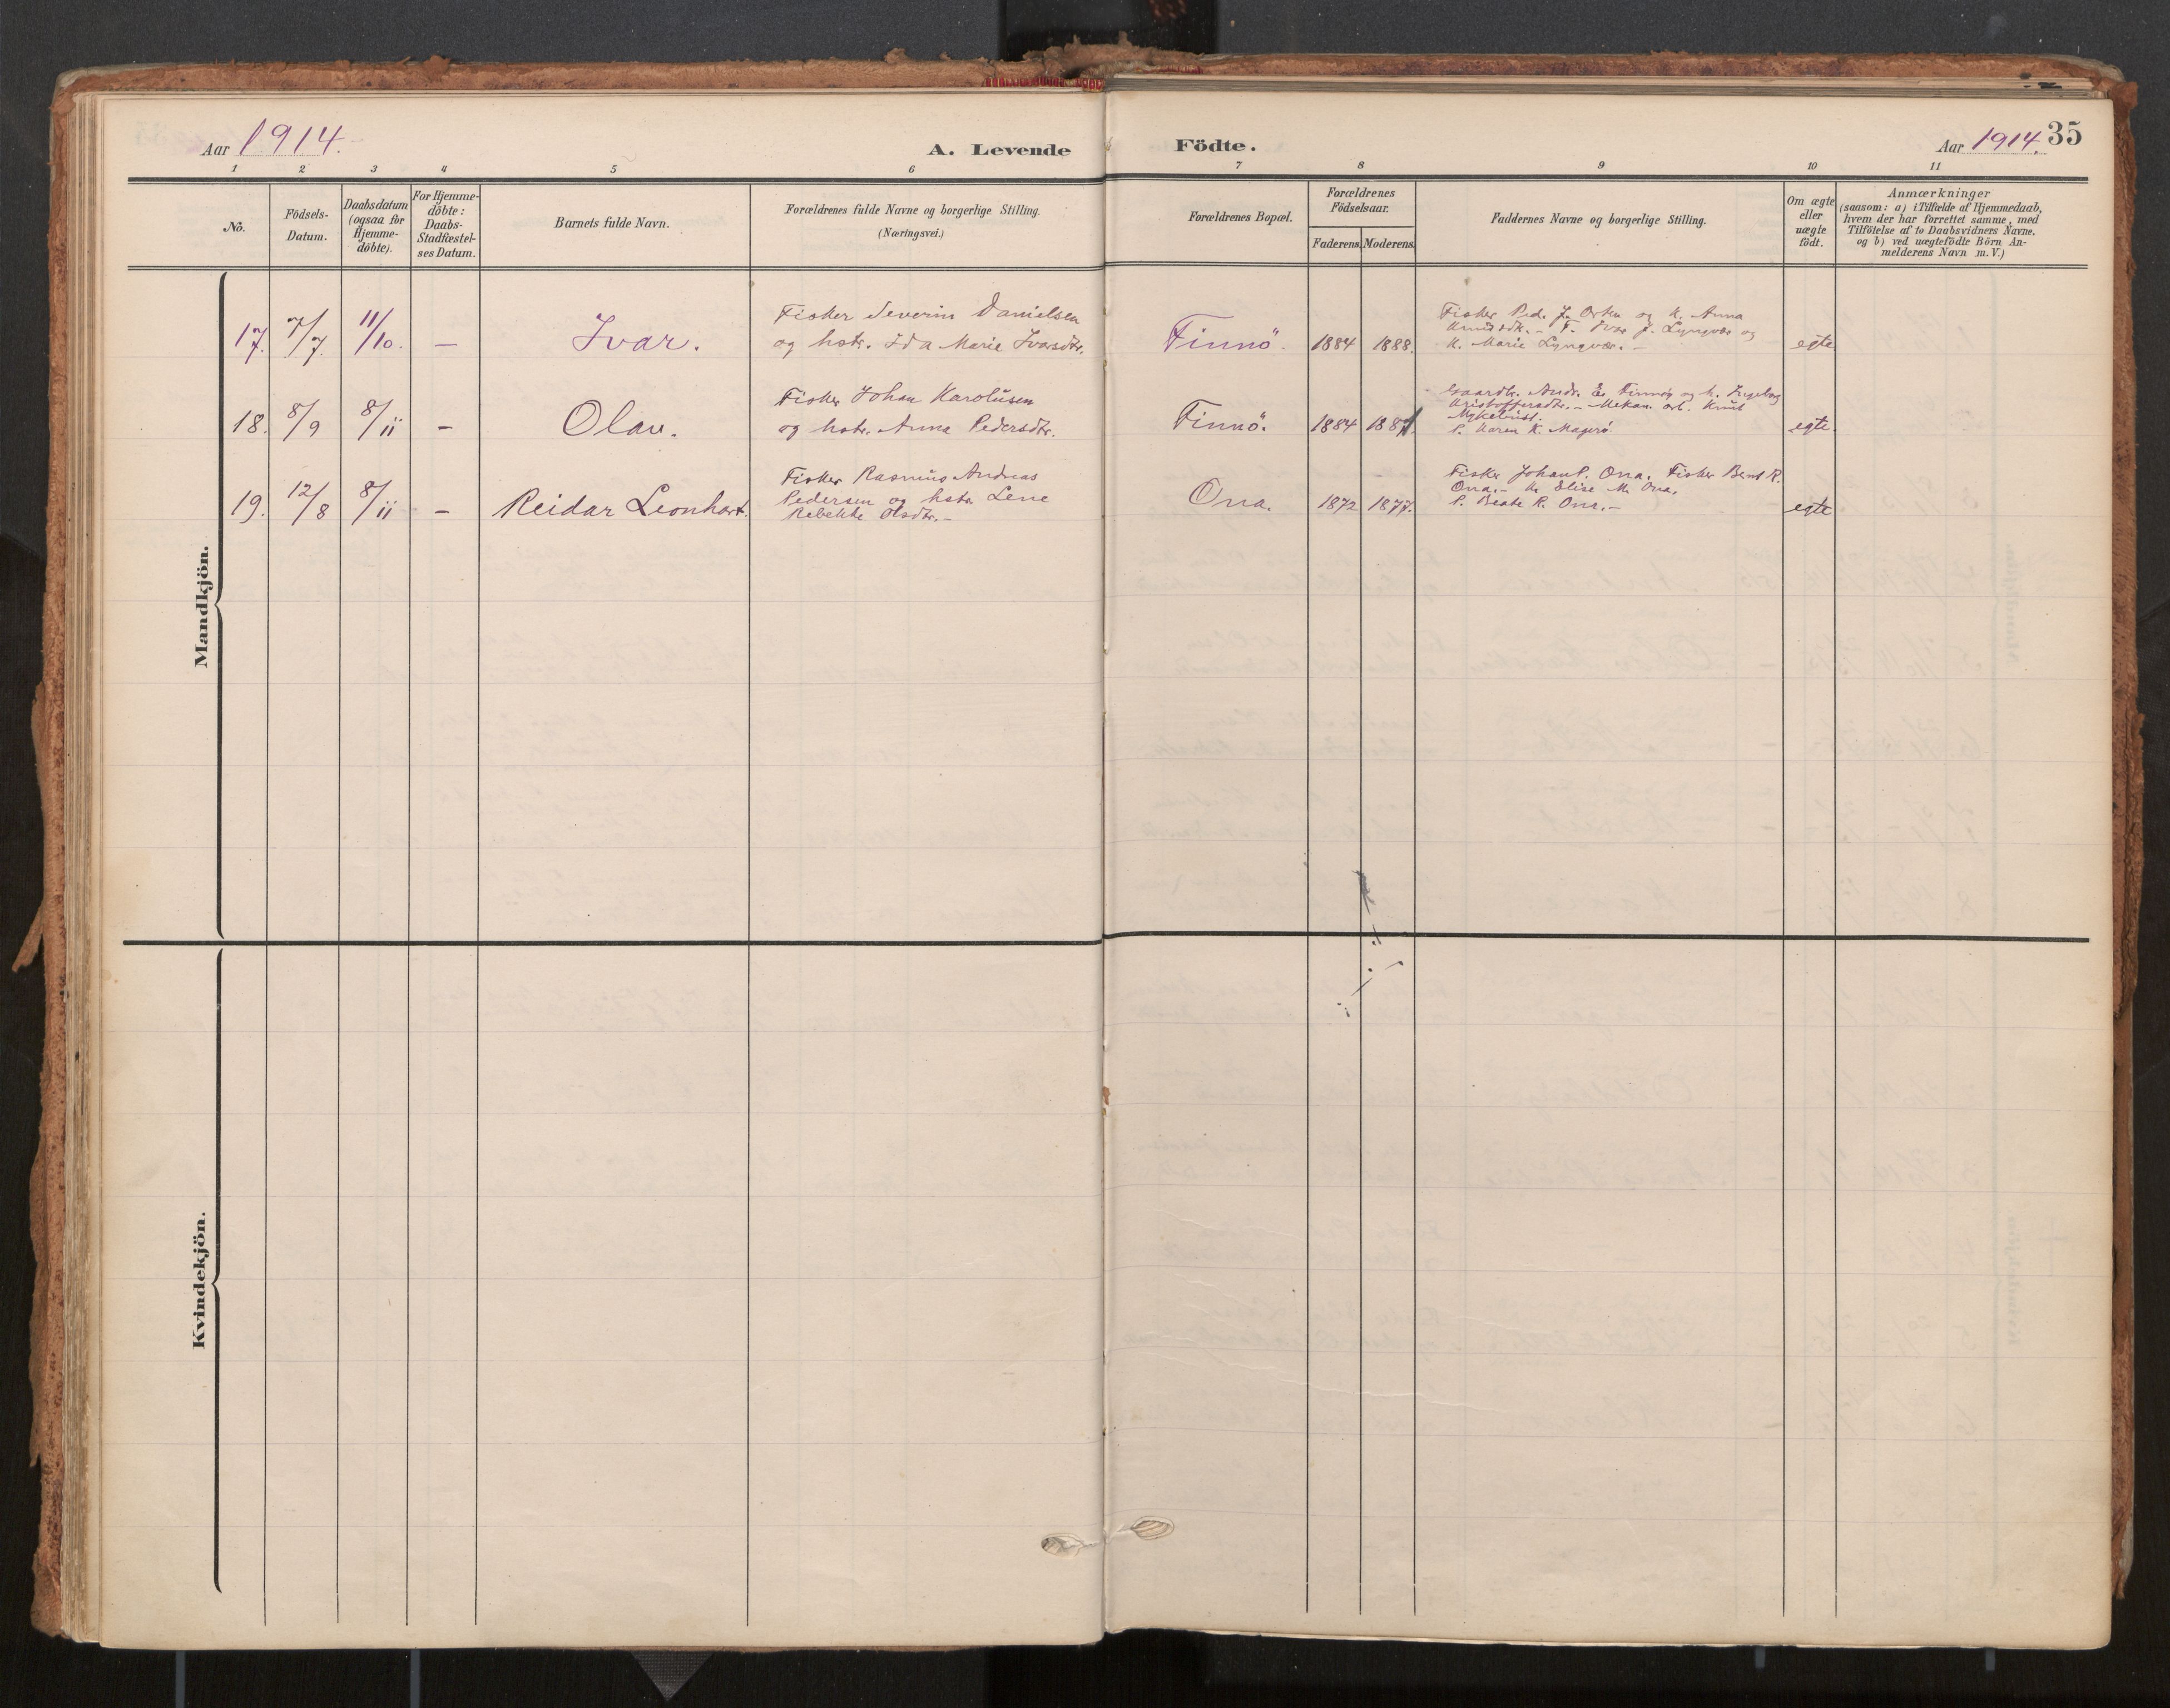 Aar 1914.
A. Levende Födte.
Aar 1914. 35
1 2 3 4 5 6 7 8 9 10 11
Nö.
Födsels-
Datum.
Daabsdatum
(ogsaa for
Hjemme-
döbte).
For Hjemme-
döbte:
Daabs-
Stadfæstel-
ses Datum.
Barnets fulde Navn.
Forældrenes fulde Navne og borgerlige Stilling.
(Næringsvei.)
Forældrenes Bopæl.
Forældrenes
Födselsaar.
Faderens. Moderens.
Faddernes Navne og borgerlige Stilling.
Om ægte
eller
uægte
födt.
Anmærkninger
(saasom: a) i Tilfælde af Hjemmedaab,
hvem der har forrettet samme, med
Tilföielse af to Daabsvidners Navne,
og b) ved uægtefödte Börn An-
melderens Navn m. V.)
Mandkjön.
17. 7/7. 11/10. — Ivar.
Fisker Severin Danielsen
og hstr. Ida Marie Ivarsdtr.
Finnö. 1884 1888.
Fisker Ped. J. Orten og K. Anna
Knudsdtr. - F. Ivar J. Lyngvær og
K. Marie Lyngvær. -
egte
18. 8/9 8/11 - Olav.
Fisker Johan Karolusen
og hstr. Anna Pedersdtr.
Finnö. 1884 1887.
Gaardbr. Andr. E. Finnöy og h. Ingeborg
Kristoffersdtr. - Mekan. arb. Knut
Myklebust.
P. Karen K. Magerö
egte.
19. 12/8 8/11 - Reidar Leonhart.
Fisker Rasmus Andreas
Pedersen og hstr. Lene
Rebekke Olsdtr. -
Ona. 1872 1877.
Fisker Johan P. Ona. Fisker Bernt R.
Ona. - K. Elise M. Ona.
P. Beate R. Ona. -
egte
Kvindekjön.